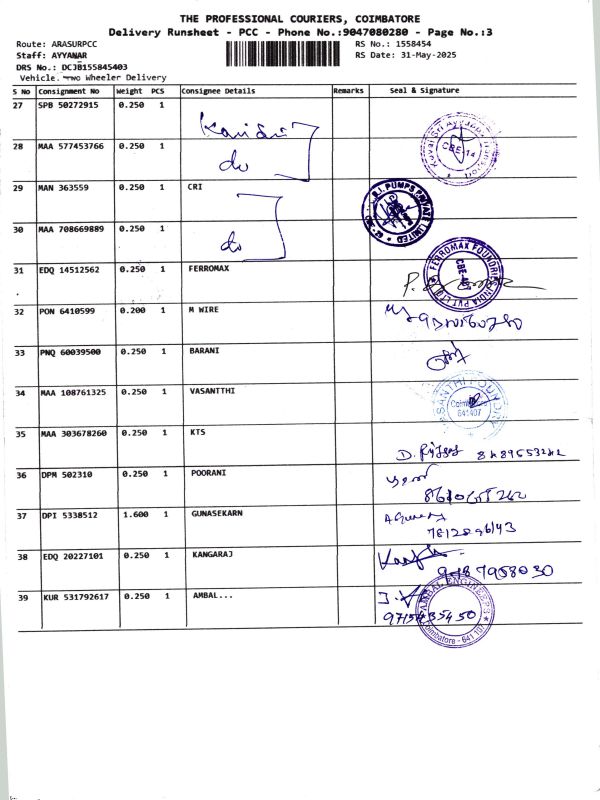 THE PROFESSIONAL COURIERS, COIMBATORE
Delivery Runsheet - PCC - Phone No.:9047080280 - Page No.:3
Route: ARASURPCC RS No.: 1558454
Staff: AYYANAR RS Date: 31-May-2025
DRS No.: DCJB155845403
Vehicle. Two Wheeler Delivery
S No Consignment No Weight PCS Consignee Details Remarks Seal & Signature
27 SPB 50272915 0.250 1
28 MAA 577453766 0.250 1 do CBE-14
29 MAN 363559 0.250 1 CRI PUMPS PRIVATE LIMITED
30 MAA 708669889 0.250 1 do
31 EDQ 14512562 0.250 1 FERROMAX FERROMAX FOUNDRIES INDIA PVT LTD
32 PON 6410599 0.200 1 M WIRE
33 PNQ 60039500 0.250 1 BARANI
34 MAA 108761325 0.250 1 VASANTTHI SANTHI FOUNDRY 641407
35 MAA 303678260 0.250 1 KTS
36 DPM 502310 0.250 1 POORANI
37 DPI 5338512 1.600 1 GUNASEKARN
38 EDQ 20227101 0.250 1 KANGARAJ
39 KUR 531792617 0.250 1 AMBAL... 9715435450 AMBAL ENGINEERS Coimbatore - 641 107